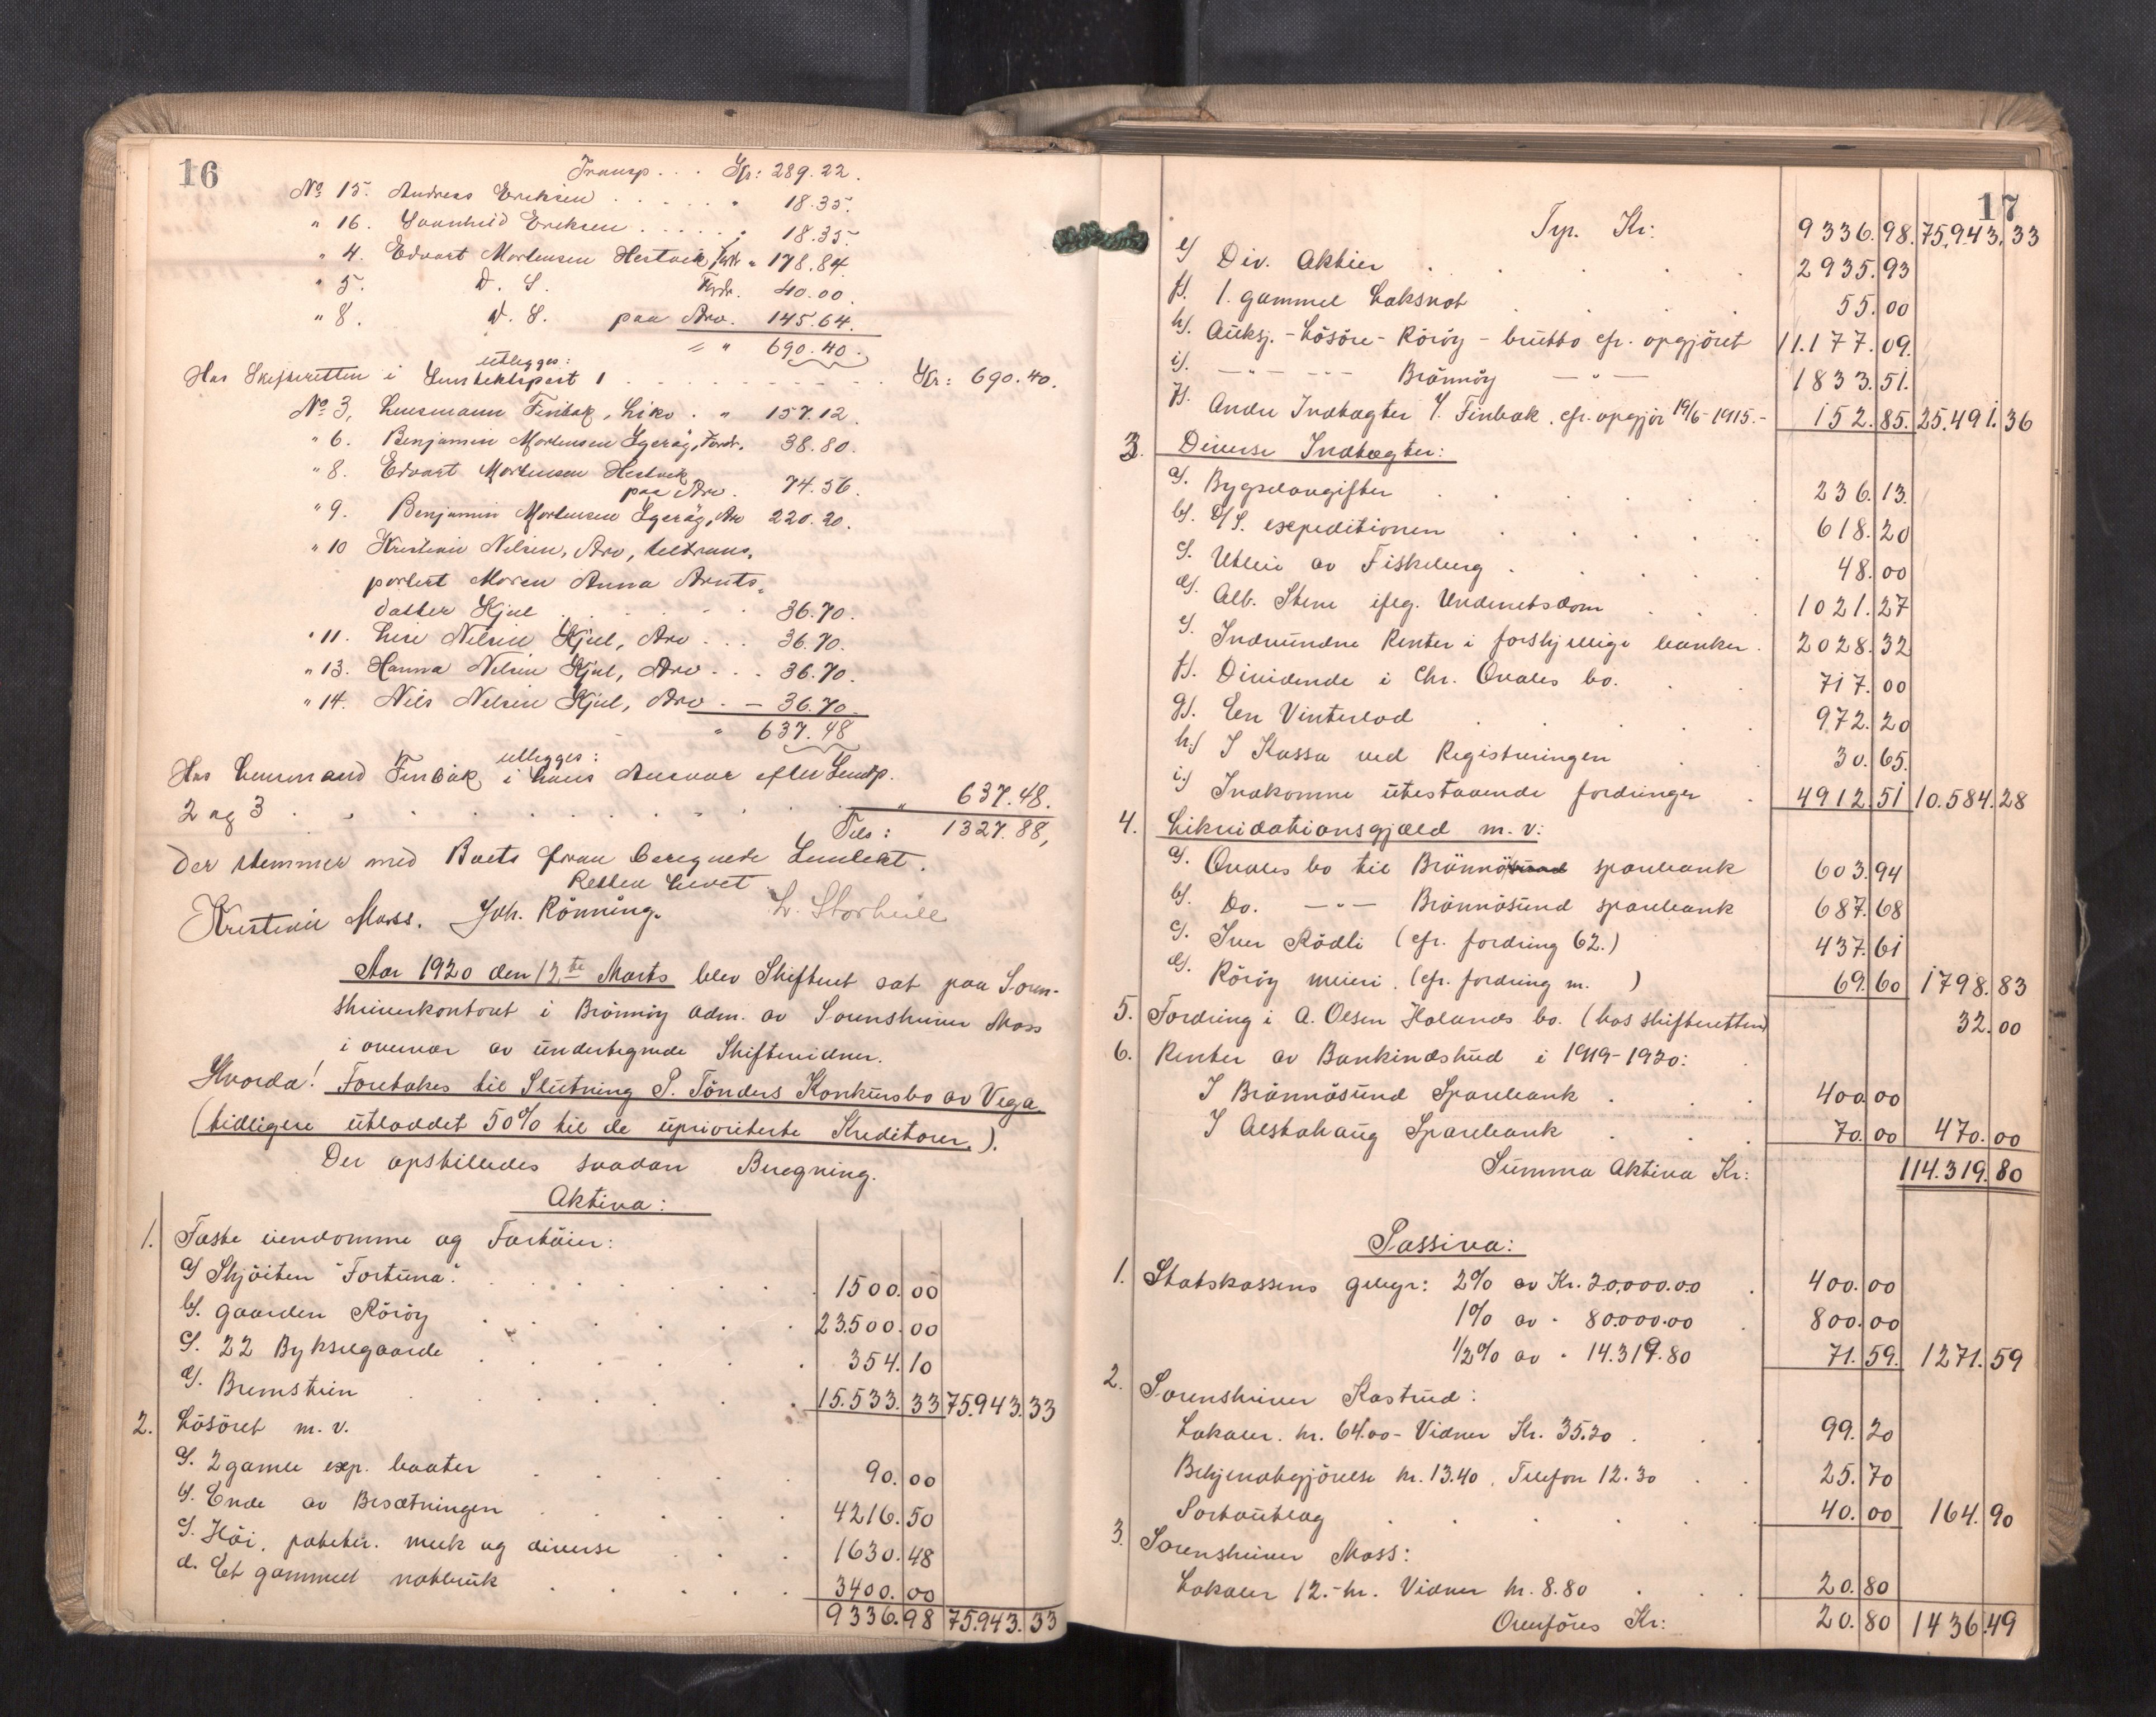 16
Transp. . . Kr: 289.22.
No 15. Andreas Eriksen . . . . . " 18.35.
" 16. Eriksen . . . . . " 18.35.
" 4. Edvart Mortensen Hestvik, " 178.84.
" 5. D. S. Fordr. 40.00.
" 8. D. S. paa Arv. 145.64.
= " 690.40.
utlegges:
Hos Skifteretten i 1 . . . . . . Kr: 690.40.
No 3, Lensmann Finbak, Likv. . " 157.12.
" 6. Benjamin Mortensen Igerøy, Fordr. 38.80.
" 8. Edvart Mortensen Hestvik
paa Arv. 74.56.
" 9. Benjamin Mortensen Igerøy, Arv 220.20.
" 10 Kristine Nilsen, Arv, tiltrans-
portert Moren Anna Arnts-
datter Kjul . . . . 36.70.
" 11. Lise Nilsen Kjul, Arv . . . 36.70.
" 13. Hanna Nilsen Kjul, Arv . . . 36.70.
" 14. Nils Nilsen Kjul, Arv . — 36.70.
" 637.48
utlegges:
Hos Lensmand Finbak i hans Ansvar efter
2 og 3 . . . . . . . . " 637.48.
Tils: 1327.88,
Der stemmer med Boets foran beregnede
Retten hevet.
Kristine Moss. Joh. Rönning. L. Storheill
Aar 1920 den 12te Marts blev Skifteret sat paa Soren-
skriverkontoret i Brönnöy adm. av Sorenskriver Moss
i overvær av undertegnede Skiftevidner.
Hvorda! Foretokes til Slutning P. Tönders Konkursbo av Vega
(tidligere utloddet 50% til de uprioriterte Kreditorer.).
Der opstilledes saadan Beregning.
Aktiva:
1. Faste eiendomme og Fartöier:
a) Skjöiten "Fortuna". . . . . . . 1500.00
b). Gaarden Rörøy . . . . . . 23.500.00
c). 22 Bykselgaarde . . . . . . 354.10
d). Bremstein . . . . . . 15.533.33 75.943.33
2. Lösöret m. v.
a). 2 gamle exp. baater . . . . . 90.00
b). Ende av Besætningen . . . . . 4216.50
c). Höi, poteter. melk og diverse . . . 1630.48
d. Et gammelt notbruk . . . . . 3400.00
9336.98 75.943.33
17
Trp. Kr: 9336.98. 75.943.33
e) Div. Aktier . . . . . . 2935.93
f). 1. gammel Laksnot . . . . 55.00
h). Auksj. - Lösöre - Röröy - brutto cfr. opgjöret 11.177.09.
i). — " — --- Brönnöy — " — 1833.51.
j). Andre Indtægter v. Finbak. cfr. opgjör 19/6-1915.- 152.85. 25.491.36
3. Diverse Indtægter:
a). Bygselavgifter . . . . . . 236.13.
b). D/S. expeditionen . . . . . 618.20
c). Utleie av Fiskeberg . . . . . 48.00
d). Alb. Stene iflg. Underretsdom . . . 1021.27
e). Indvundne Renter i forskjellige banker. 2028.32
f). Dividende i Chr. Qvales bo. . . 717.00
g). Een Vinterlod . . . . . 972.20
h.) I Kassa ved Registreringen . . 30.65.
i.) Indkomne utestaaende fordringer . 4912.51 10.584.28
4. Likvidationsgjæld m. v:
a). Qvales bo til Brönnösund sparebank 603.94
b). Do. — " — Brönnösund sparebank 687.68
c). Iver Rödli (cfr. fordring 62.) 437.61
d). Röröy meieri. (cfr. fordring m. ) 69.60 1798.83
5. Fordring i A. Olsen Holands bo. (hos skifteretten) 32.00
6. Renter av Bankindskud i 1919-1920:
I Brönnösund Sparebank . . . 400.00
I Alstahaug Sparebank . . . 70.00 470.00
Summa Aktiva Kr: 114.319.80
Passiva:
1. Statskassens gebyr: 2% av Kr. 20.000.00 . 400.00
1% av " 80.000.00 . 800.00
1/2% av " 14.319.80 71.59. 1271.59
2. Sorenskriver Kastrud:
Lokaler. kr. 64.00 - Vidner Kr. 35.20 . . 99.20
Bekjendtgjörelse kr. 13.40. Telefon 12.30 . . 25.70
Portoutlæg . . . . . . 40.00 164.90
3. Sorenskriver Moss:
Lokaler 12.- kr. Vidner kr. 8.80 . . . 20.80
Overföres Kr: 20.80 1436.49